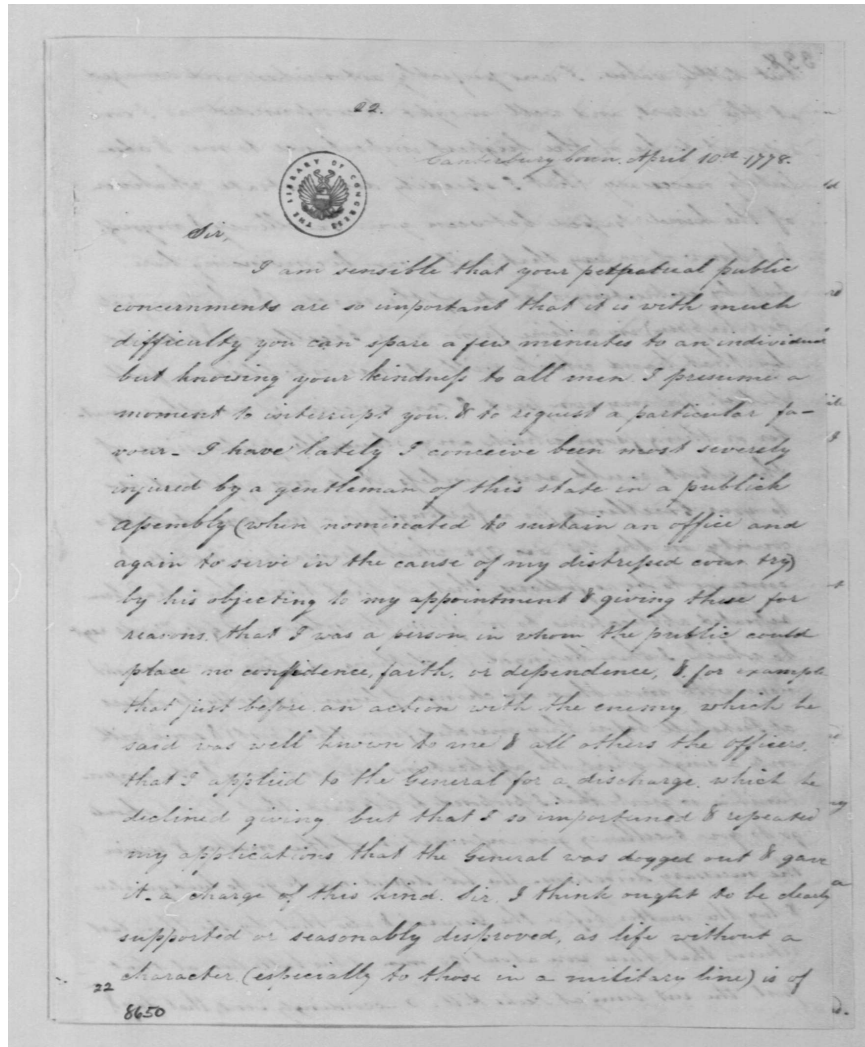 22.
Canterbury Conn. April 10th 1778.
THE LIBRARY OF CONGRESS
Sir,
I am sensible that your perpetual public
concernments are so important that it is with much
difficulty you can spare a few minutes to an individual
but knowing your kindness to all men I presume a
moment to interrupt you & to request a particular fa-
vour- I have lately I conceive been most severely
injured by a gentleman of this state in a publick
Assembly (when nominated to sustain an office and
again to serve in the cause of my distressed coun try)
by his objecting to my appointment & giving these for
reasons, that I was a person in whom the public could
place no confidence, faith, or dependence, & for example
that just before an action with the enemy which he
said was well known to me & all others the officers,
that I applied to the General for a discharge, which he
declined giving but that I so importuned & repeated
my applications that the General was dogged out & gave
it- a charge of this kind Sir, I think ought to be clearly
supported or seasonably disproved, as life without a
character (especially to those in a military line) is of
22
8650